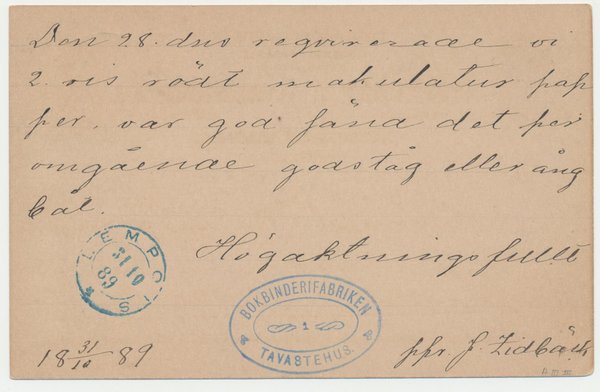 Den 28. dns reqvirerade vi
2. ris rödt makulatur pap
per. var god sänd det per
omgående godståg eller ång
båt.
Högaktningsfullt
LEMPOIS
31 10
89
BOKBINDERIFABRIKEN
1
TAVASTEHUS.
18 31/10 89
ppr J. Lidbäck